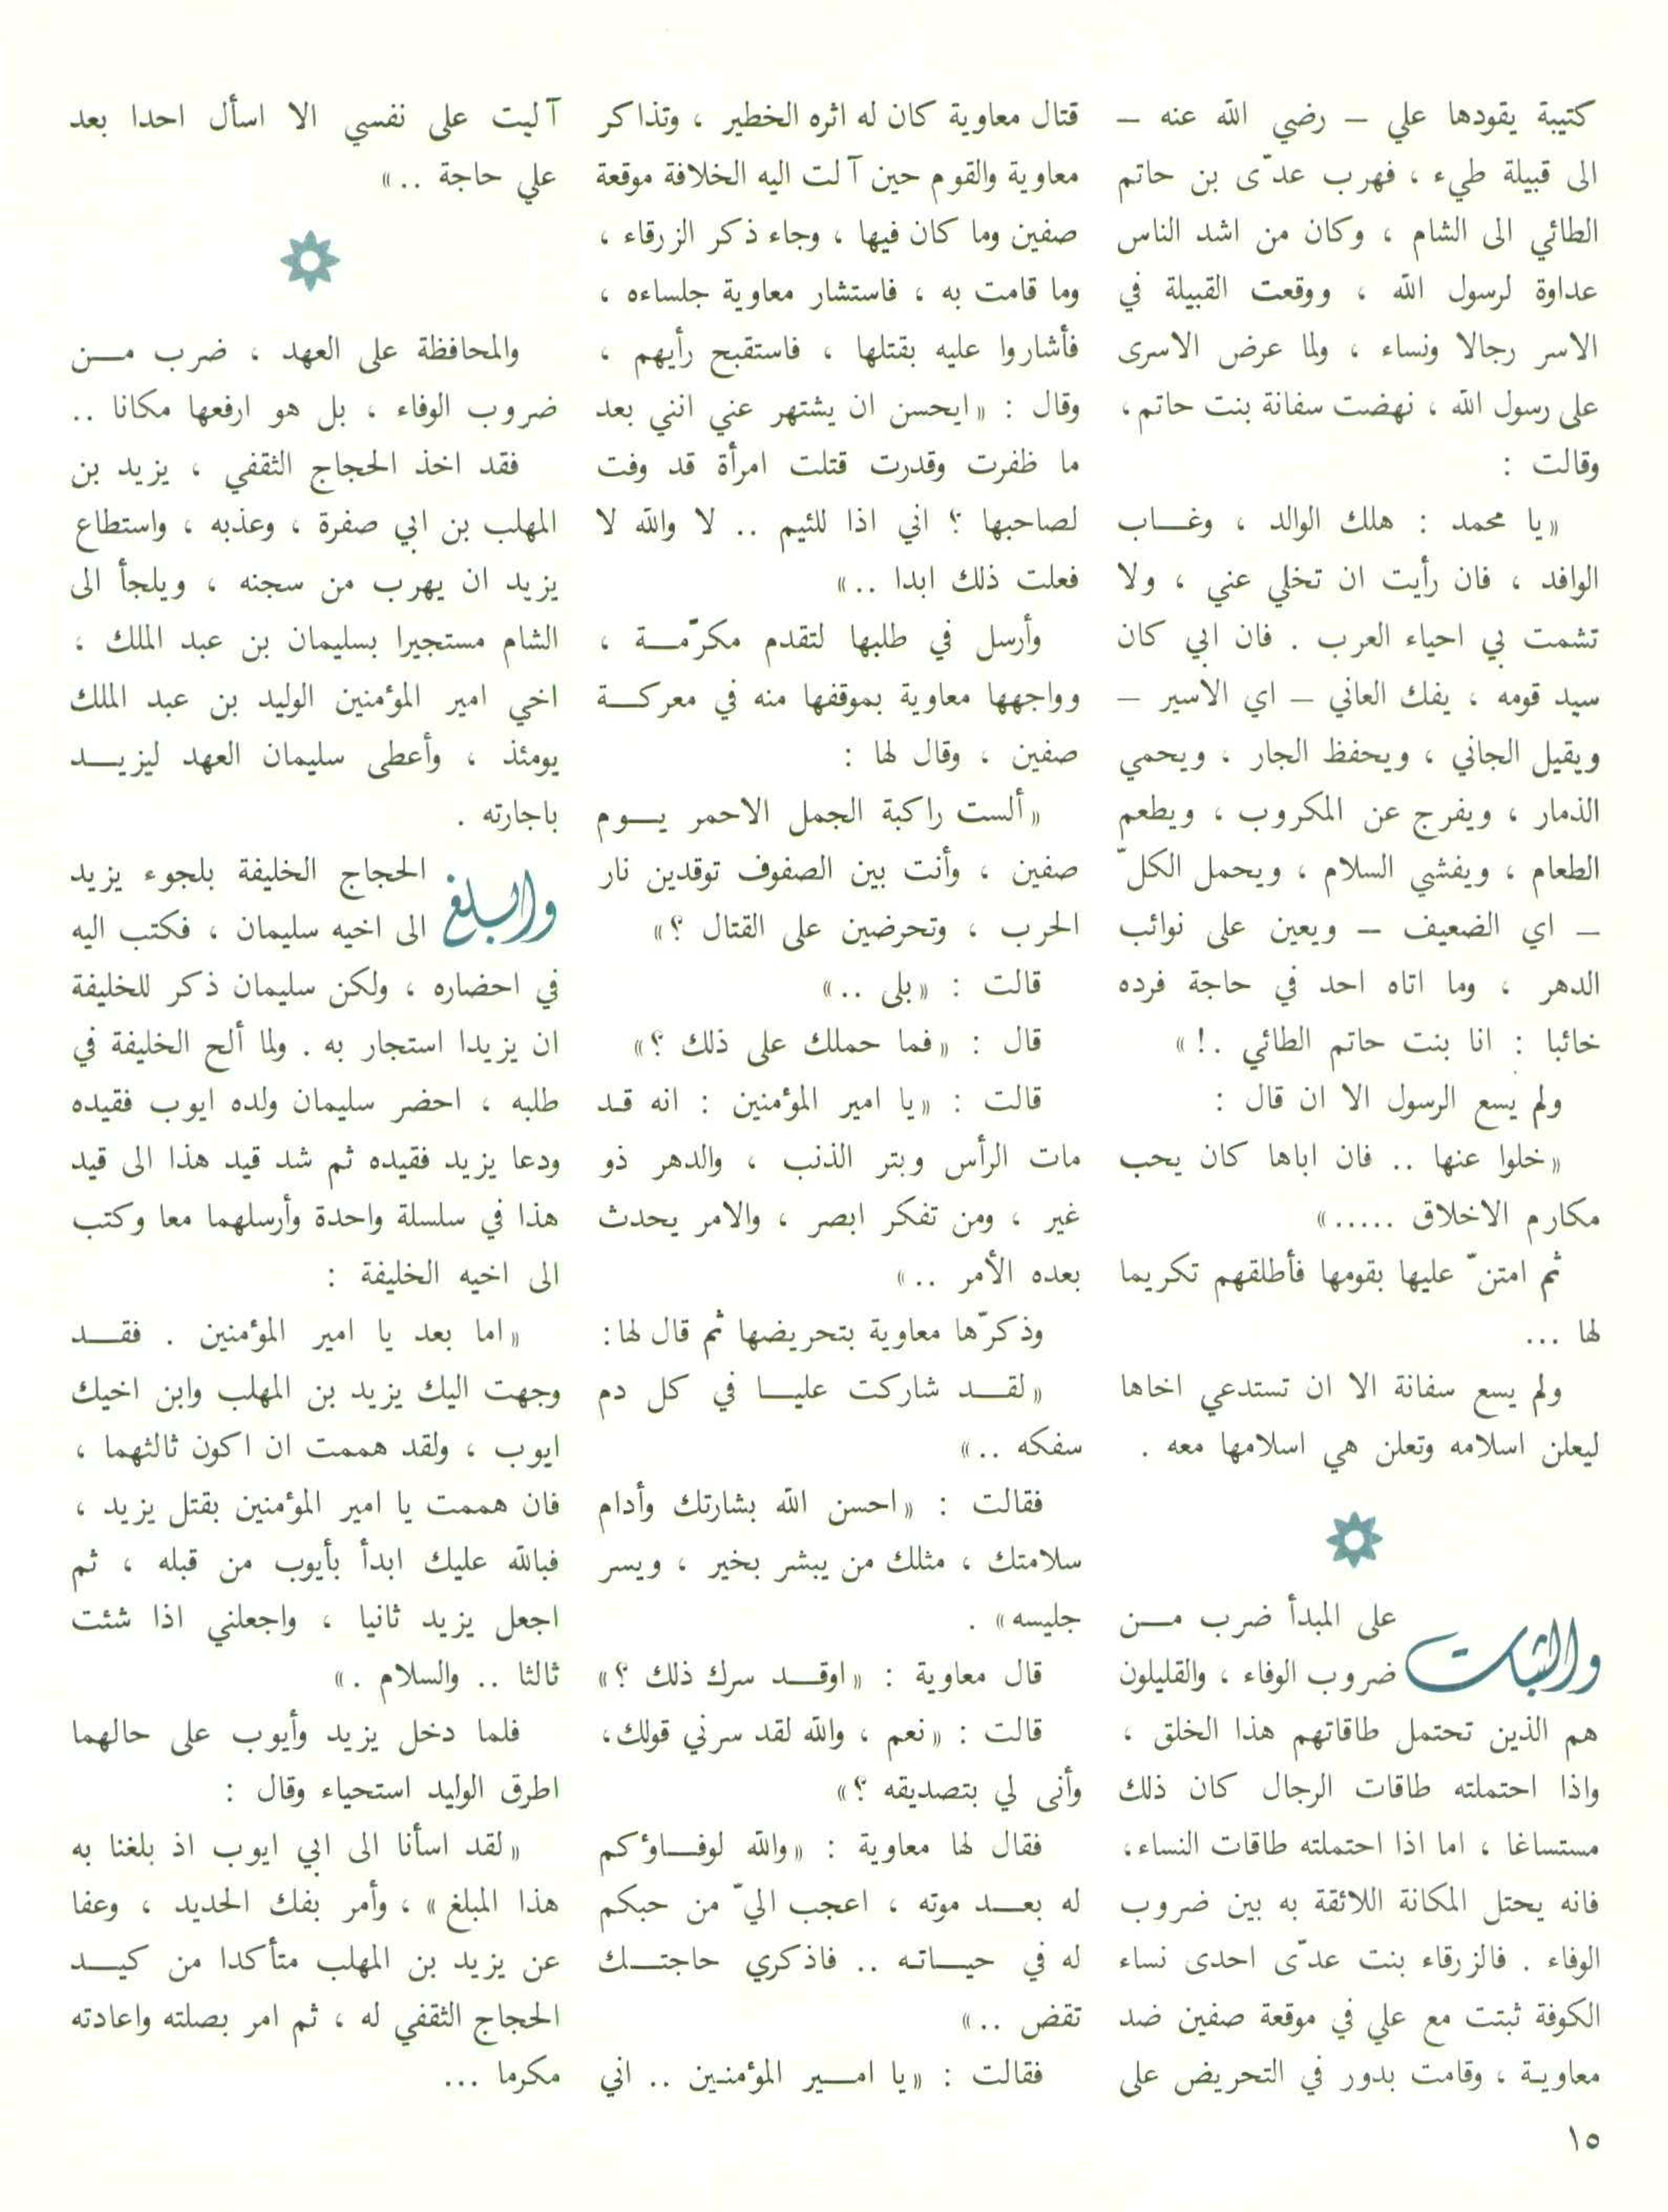 كتيبة يقودها علي – رضي الله عنه –
الى قبيلة طيء ، فهرب عدّى بن حاتم
الطائي الى الشام ، وكان من اشد الناس
عداوة لرسول الله ، ووقعت القبيلة في
الاسر رجالا ونساء ، ولما عرض الاسرى
على رسول الله ، نهضت سفانة بنت حاتم،
وقالت :
«يا محمد : هلك الوالد ، وغــاب
الوافد ، فان رأيت ان تخلي عني ، ولا
تشمت بي احياء العرب . فان ابي كان
سيد قومه ، يفك العاني – اي الاسير –
ويقيل الجاني ، ويحفظ الجار ، ويحمي
الذمار ، ويفرج عن المكروب ، ويطعم
الطعام ، ويفشي السلام ، ويحمل الكلّ
– اي الضعيف – ويعين على نوائب
الدهر ، وما اتاه احد في حاجة فرده
خائبا : انا بنت حاتم الطائي .! »
ولم يسع الرسول الا ان قال :
«خلوا عنها .. فان اباها كان يحب
مكارم الاخلاق .....»
ثم امتنّ عليها بقومها فأطلقهم تكريما
لها ...
ولم يسع سفانة الا ان تستدعي اخاها
ليعلن اسلامه وتعلن هي اسلامها معه .
والثبات على المبدأ ضرب مــن
ضروب الوفاء ، والقليلون
هم الذين تحتمل طاقاتهم هذا الخلق ،
واذا احتملته طاقات الرجال كان ذلك
مستساغا ، اما اذا احتملته طاقات النساء،
فانه يحتل المكانة اللائقة به بين ضروب
الوفاء . فالزرقاء بنت عدّى احدى نساء
الكوفة ثبتت مع علي في موقعة صفين ضد
معاوية ، وقامت بدور في التحريض على
قتال معاوية كان له اثره الخطير ، وتذاكر
معاوية والقوم حين آلت اليه الخلافة موقعة
صفين وما كان فيها ، وجاء ذكر الزرقاء ،
وما قامت به ، فاستشار معاوية جلساءه ،
فأشاروا عليه بقتلها ، فاستقبح رأيهم ،
وقال : «ايحسن ان يشتهر عني انني بعد
ما ظفرت وقدرت قتلت امرأة قد وفت
لصاحبها ؟ اني اذا للئيم .. لا والله لا
فعلت ذلك ابدا ..»
وأرسل في طلبها لتقدم مكرّمــة ،
وواجهها معاوية بموقفها منه في معركــة
صفين ، وقال لها :
«ألست راكبة الجمل الاحمر يــوم
صفين ، وأنت بين الصفوف توقدين نار
الحرب ، وتحرضين على القتال ؟»
قالت : «بلى ..»
قال : «فما حملك على ذلك ؟»
قالت : «يا امير المؤمنين : انه قد
مات الرأس وبتر الذنب ، والدهر ذو
غير ، ومن تفكر ابصر ، والامر يحدث
بعده الأمر ..»
وذكرّها معاوية بتحريضها ثم قال لها:
«لقــد شاركت عليــا في كل دم
سفكه ..»
فقالت : «احسن الله بشارتك وأدام
سلامتك ، مثلك من يبشر بخير ، ويسر
جليسه» .
قال معاوية : «اوقــد سرك ذلك ؟»
قالت : «نعم ، والله لقد سرني قولك،
وأنى لي بتصديقه ؟»
فقال لها معاوية : «والله لوفــاؤكم
له بعــد موته ، اعجب اليّ من حبكم
له في حيــاته .. فاذكري حاجتــك
تقض ..»
فقالت : «يا امــير المؤمنــين .. اني
آليت على نفسي الا اسأل احدا بعد
علي حاجة ..»
والمحافظة على العهد ، ضرب مــن
ضروب الوفاء ، بل هو ارفعها مكانا ..
فقد اخذ الحجاج الثقفي ، يزيد بن
المهلب بن ابي صفرة ، وعذبه ، واستطاع
يزيد ان يهرب من سجنه ، ويلجأ الى
الشام مستجيرا بسليمان بن عبد الملك ،
اخي امير المؤمنين الوليد بن عبد الملك
يومئذ ، وأعطى سليمان العهد ليزيــد
باجارته .
وابلغ الحجاج الخليفة بلجوء يزيد
الى اخيه سليمان ، فكتب اليه
في احضاره ، ولكن سليمان ذكر للخليفة
ان يزيدا استجار به . ولما ألح الخليفة في
طلبه ، احضر سليمان ولده ايوب فقيده
ودعا يزيد فقيده ثم شد قيد هذا الى قيد
هذا في سلسلة واحدة وأرسلهما معا وكتب
الى اخيه الخليفة :
«اما بعد يا امير المؤمنين . فقــد
وجهت اليك يزيد بن المهلب وابن اخيك
ايوب ، ولقد هممت ان اكون ثالثهما ،
فان هممت يا امير المؤمنين بقتل يزيد ،
فبالله عليك ابدأ بأيوب من قبله ، ثم
اجعل يزيد ثانيا ، واجعلني اذا شئت
ثالثا .. والسلام .»
فلما دخل يزيد وأيوب على حالهما
اطرق الوليد استحياء وقال :
«لقد اسأنا الى ابي ايوب اذ بلغنا به
هذا المبلغ» ، وأمر بفك الحديد ، وعفا
عن يزيد بن المهلب متأكدا من كيــد
الحجاج الثقفي له ، ثم امر بصلته واعادته
مكرما ...
١٥